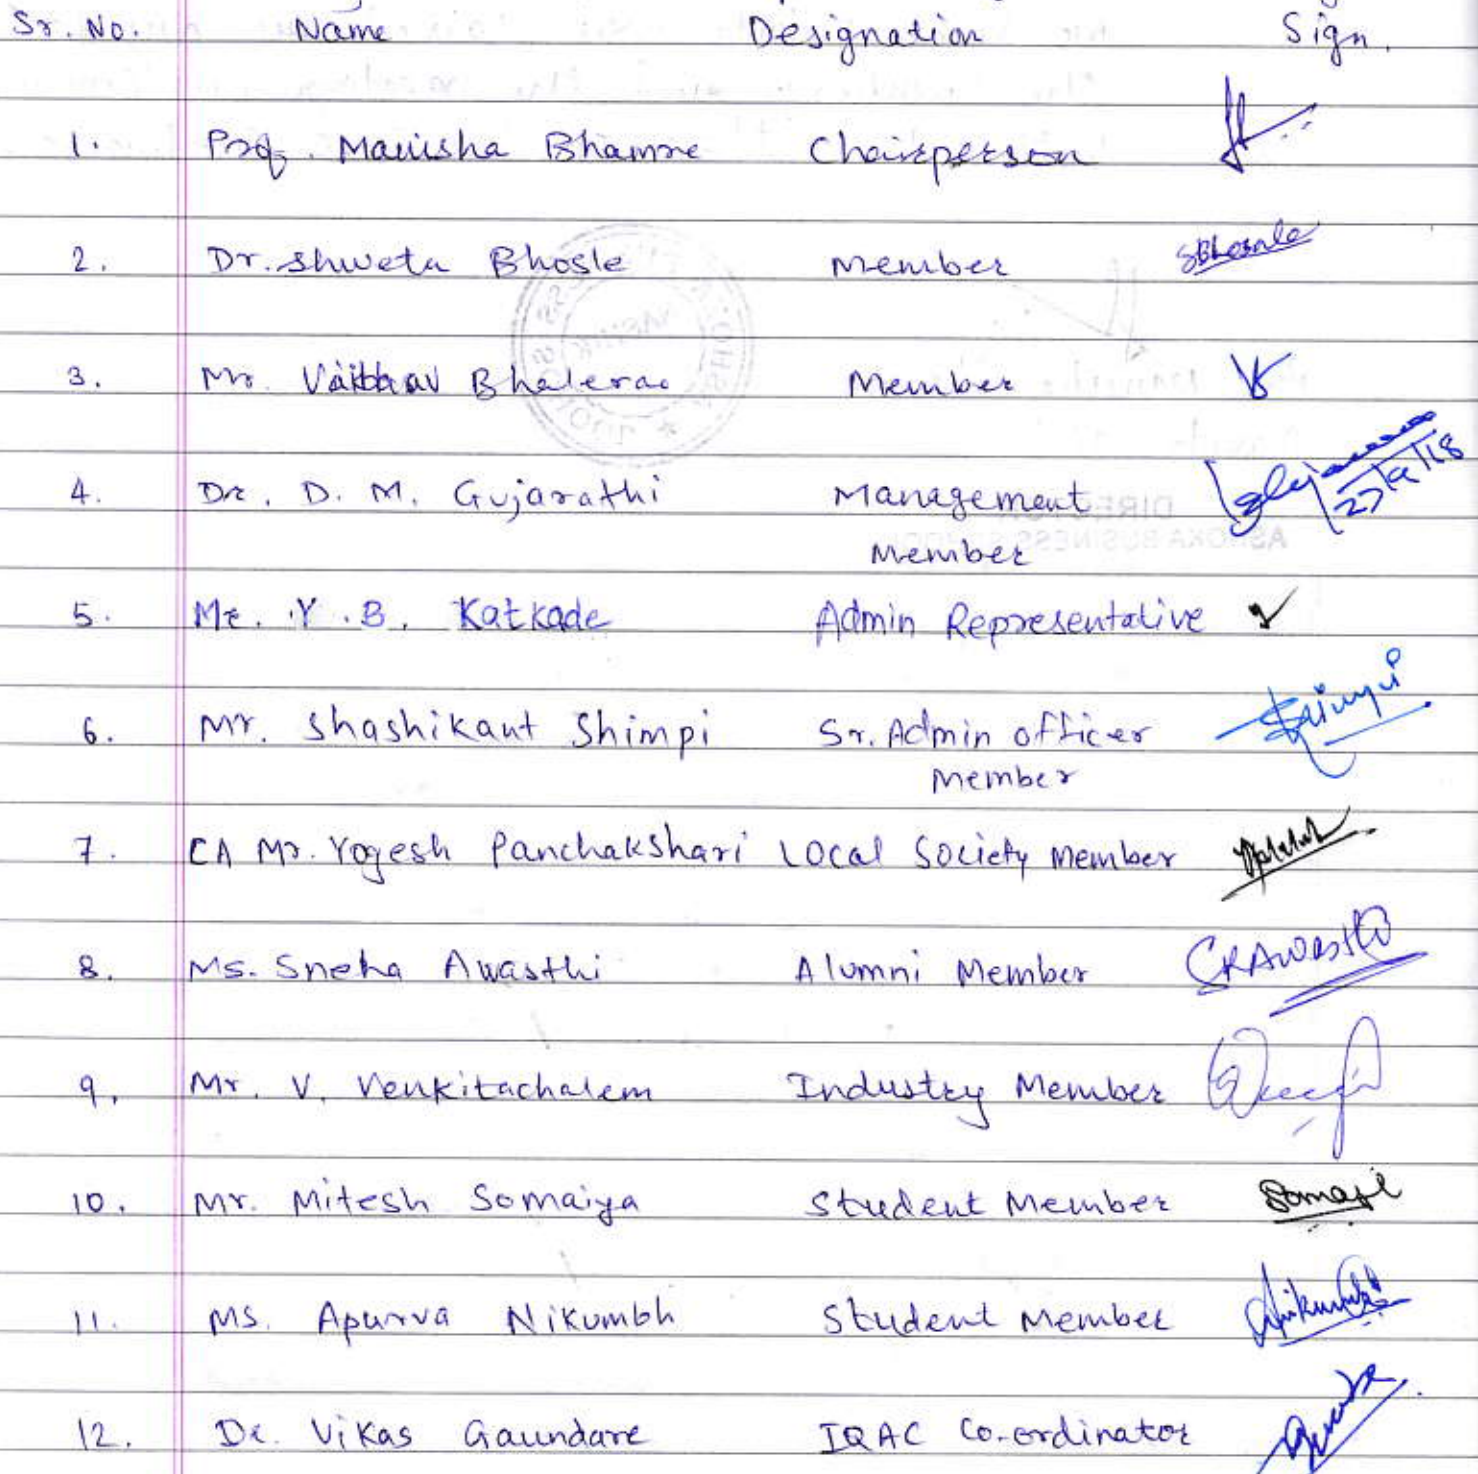 Sr. No. Name Designation Sign.
1. Prof. Manisha Bhamre Chairperson
2. Dr. Shweta Bhosle Member SBhosale
3. Mr. Vaibhav Bhalerao Member
4. Dr. D. M. Gujarathi Management 27/9/18
Member
5. Mr. Y. B. Katkade Admin Representative
6. Mr. Shashikant Shimpi Sr. Admin officer
Member
7. CA Mr. Yogesh Panchakshari Local Society Member
8. Ms. Sneha Awasthi Alumni Member SRAwasthi
9. Mr. V. Venkitachalem Industry Member
10. Mr. Mitesh Somaiya Student Member
11. Ms. Apurva Nikumbh Student Member
12. Dr. Vikas Gaundare IQAC Co-ordinator